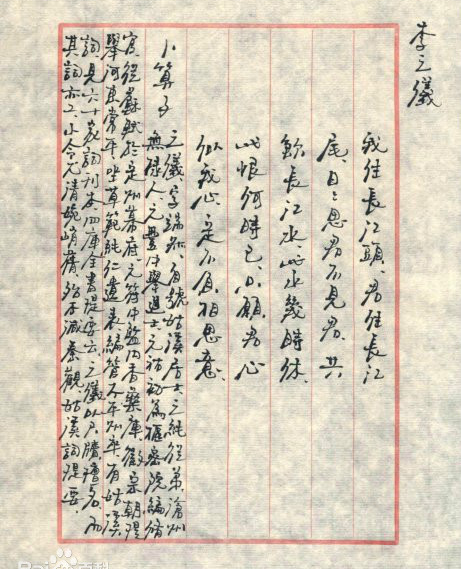 李之儀
我住長江頭、君住長江
尾、日〻思君不見君、共
飲長江水、此水幾時休
此恨何時已、只願君心
似我心、定不負、相思意。
卜算子
之儀、字端叔、自號姑溪居士、之純從弟、滄州
無棣人、元豐中舉進士、元祐初為樞密院編修
官、從蘇軾於定州幕府、元符中監內香藥庫、徽宗朝提
舉河東常平、坐草範純仁遺表編管太平州、卒有姑溪
詞見六十家詞刊本、四庫全書提要云、之儀以尺牘擅名、而
其詞亦工、小令尤清婉峭蒨、殆不減秦觀、姑溪詞提要